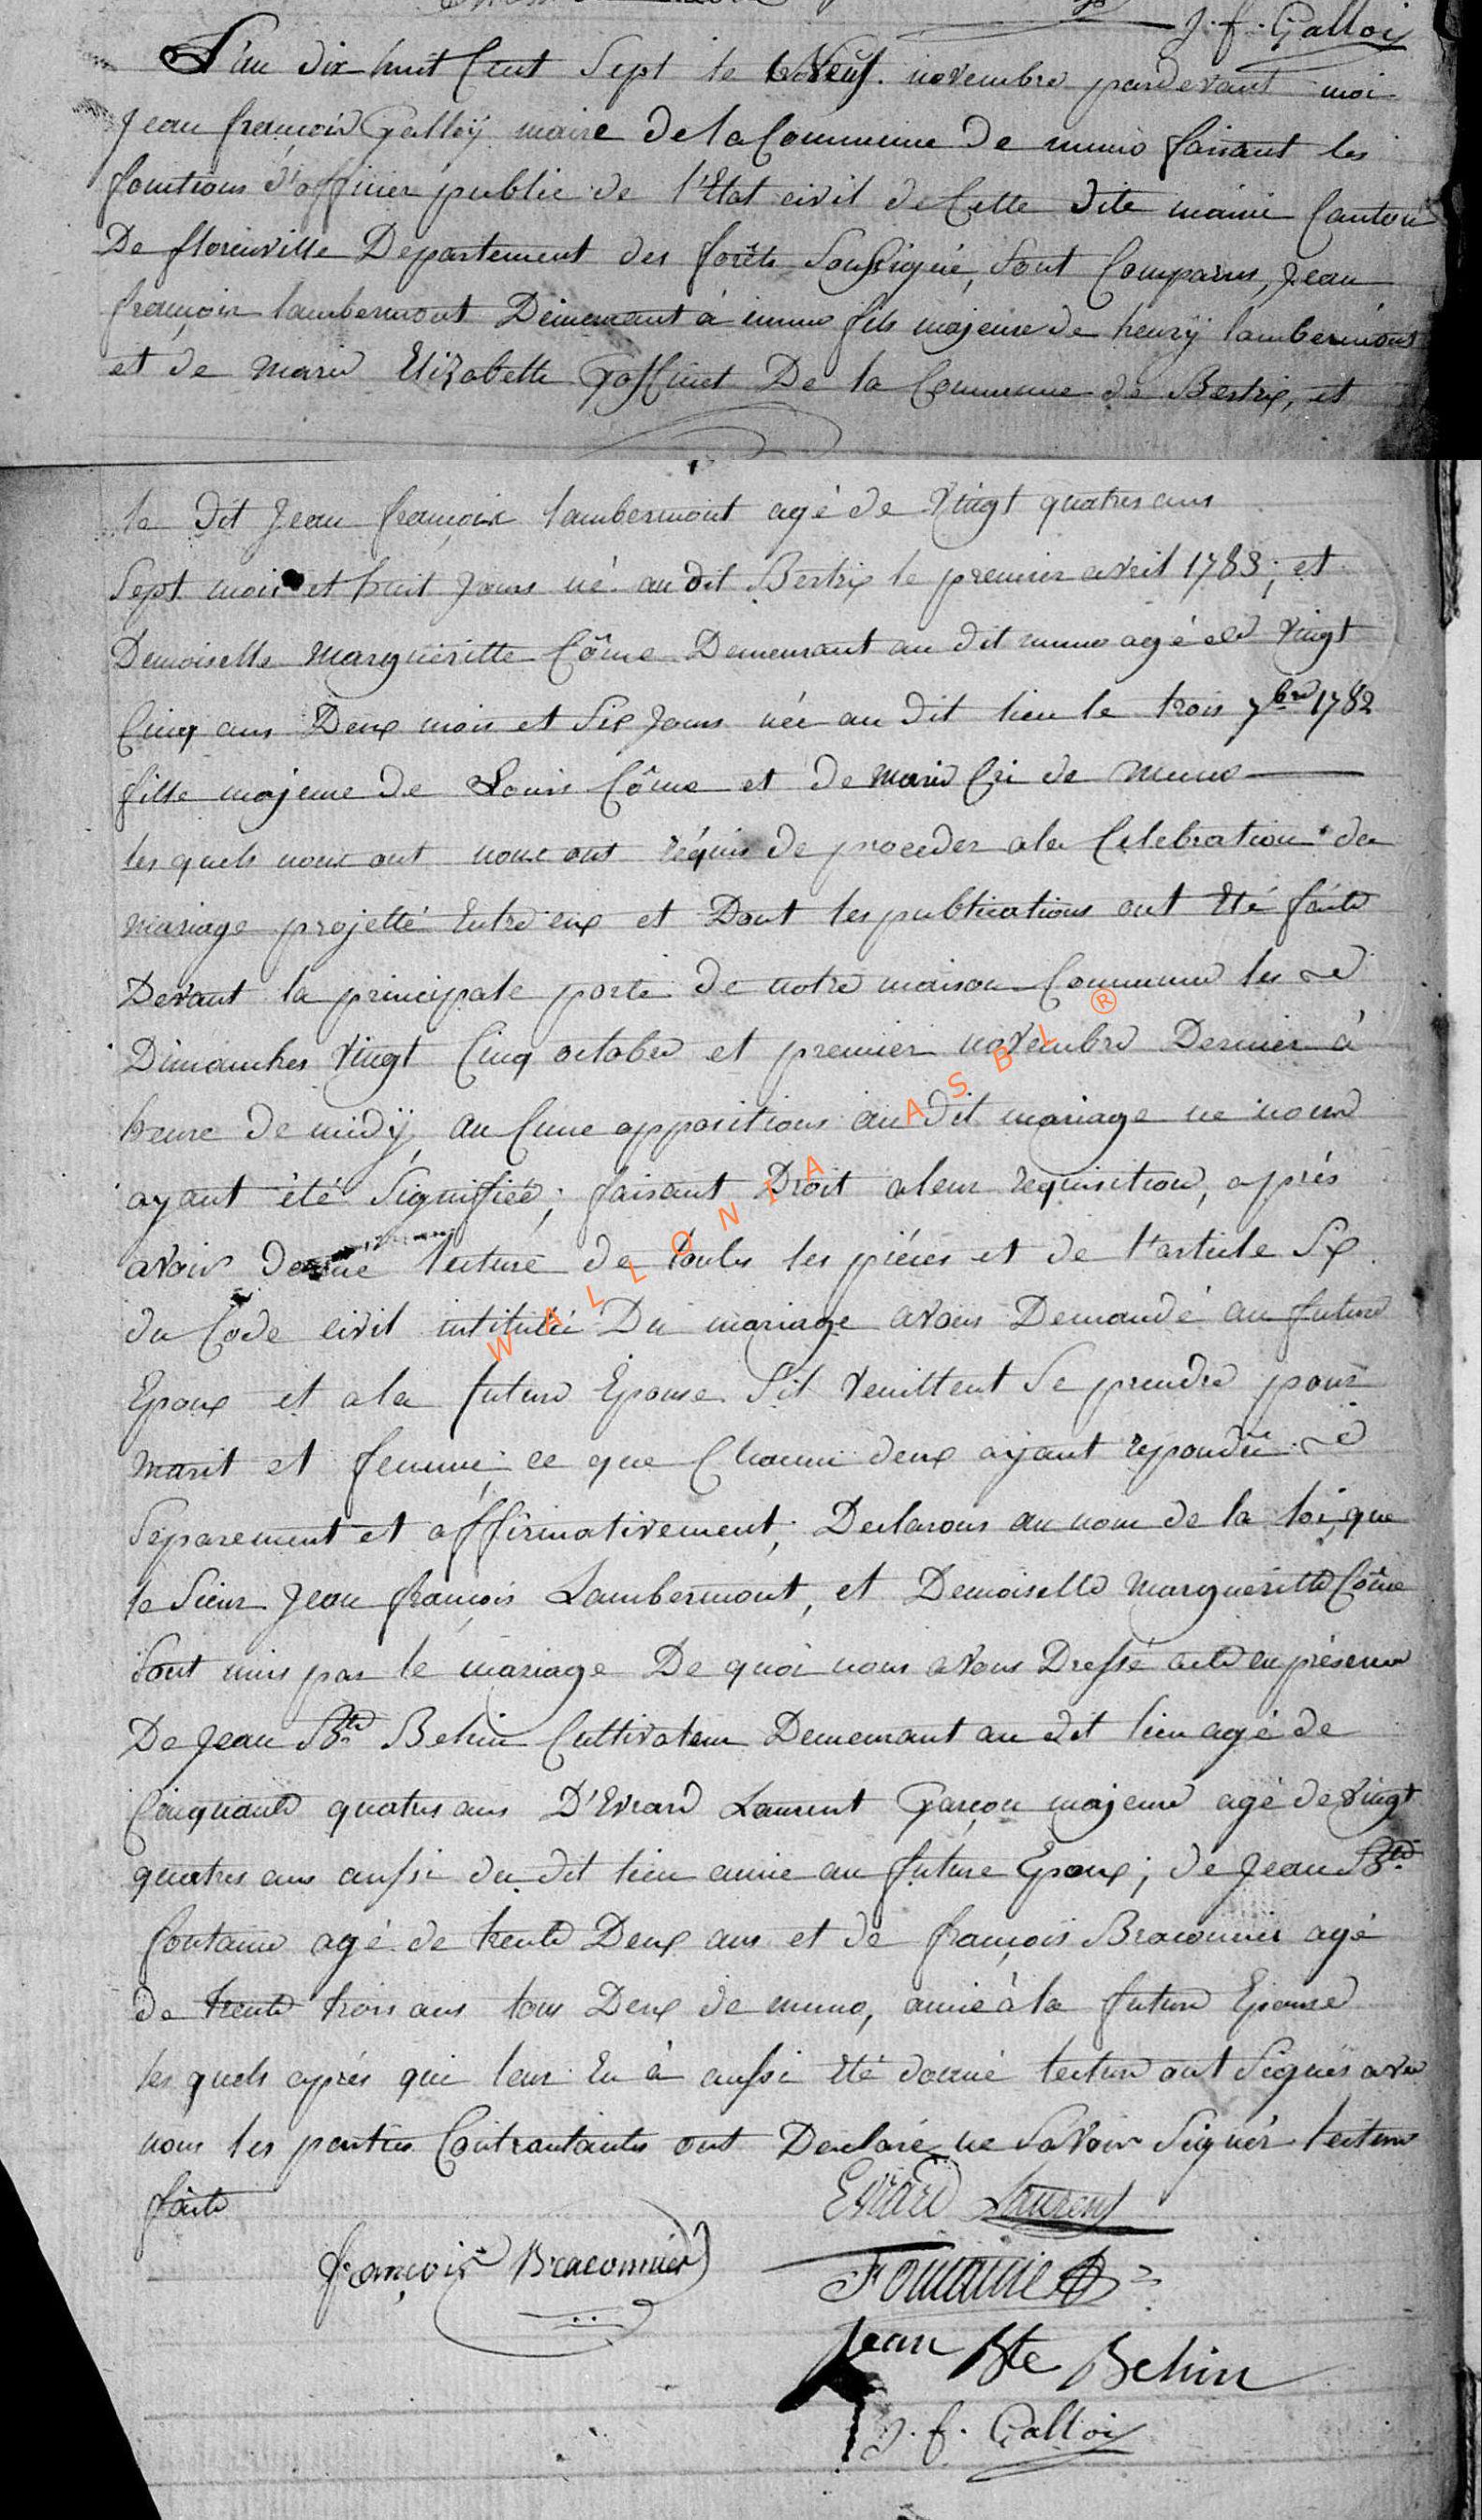 J. f. Gallois
L'an dix huit Cent Sept le Neuf novembre pardevant moi
Jean françois Galloÿ maire De la Commune De muno faisant les
fonctions d'officier public de l'Etat civil de Cette dite mairie Canton
De florenville Departement des forêts Soussigné, Sont Comparus, Jean
françois lambermont Demeurant à muno fils majeure de henrÿ lambermont
et de marie Elizabette Goffinet De la Commune de Bertrix, et
le dit Jean françois lambermont agé de Vingt quatres ans
Sept mois et huit Jours né au dit Bertrix le premier avril 1783; et
Demoiselle margueritte Côme Demeurant au dit muno agé de vingt
Cinq ans Deux mois et Six Jours née au dit lieu le trois 7bre 1782
fille majeure de Louis Côme et de marie Cri de muno
les quels nous ont nous ont réquis de proceder a la Celebration du
mariage projetté Entre eux et Dont les publications ont Eté faite
Devant la principale porte de notre maison Commune les
Dimanches vingt Cinq octobre et premier novembre Dernier à
heure de midÿ, au Cune oppositions au dit mariage ne nous
ayant été Signifiée; faisant Droit a leur requisition, aprés
avoir donné lecture de toutes les piéces et de l'article Six
du Code civil intitulé Du mariage avons Demandé au future
Epoux et a la future Epouse S'il veuillent Se prendre pour
marit et femme ce que Chacun deux ayant repondue
Separement et affirmativement; Declarons au nom de la loi, que
le Sieur Jean françois Lambermont, et Demoiselle margueritte Côme
Sont unis par le mariage De quoi nous avons Dressé acte en présence
De Jean Bte Behin Cultivateur Demeurant au dit lieu agé de
Cinquante quatres ans D'Evrard Laurent Garçon majeure agé de vingt
quatres ans aussi du dit lieu amie au future Epoux; de Jean Bte
fontaine agé de trente Deux ans et de françois Braconnier agé
de trente trois ans tous Deux de muno, amie à la future Epouse
les quels aprés qui leur En à aussi Eté donné lecture ont Signés avec
nous les parties Contractantes ont Declaré ne Savoir Signér lecture
faite
Evrard Laurent
françois Braconnier
Fontaine
Jean Bte Behin
J. f. Gallois
WALLONIA ASBL ®